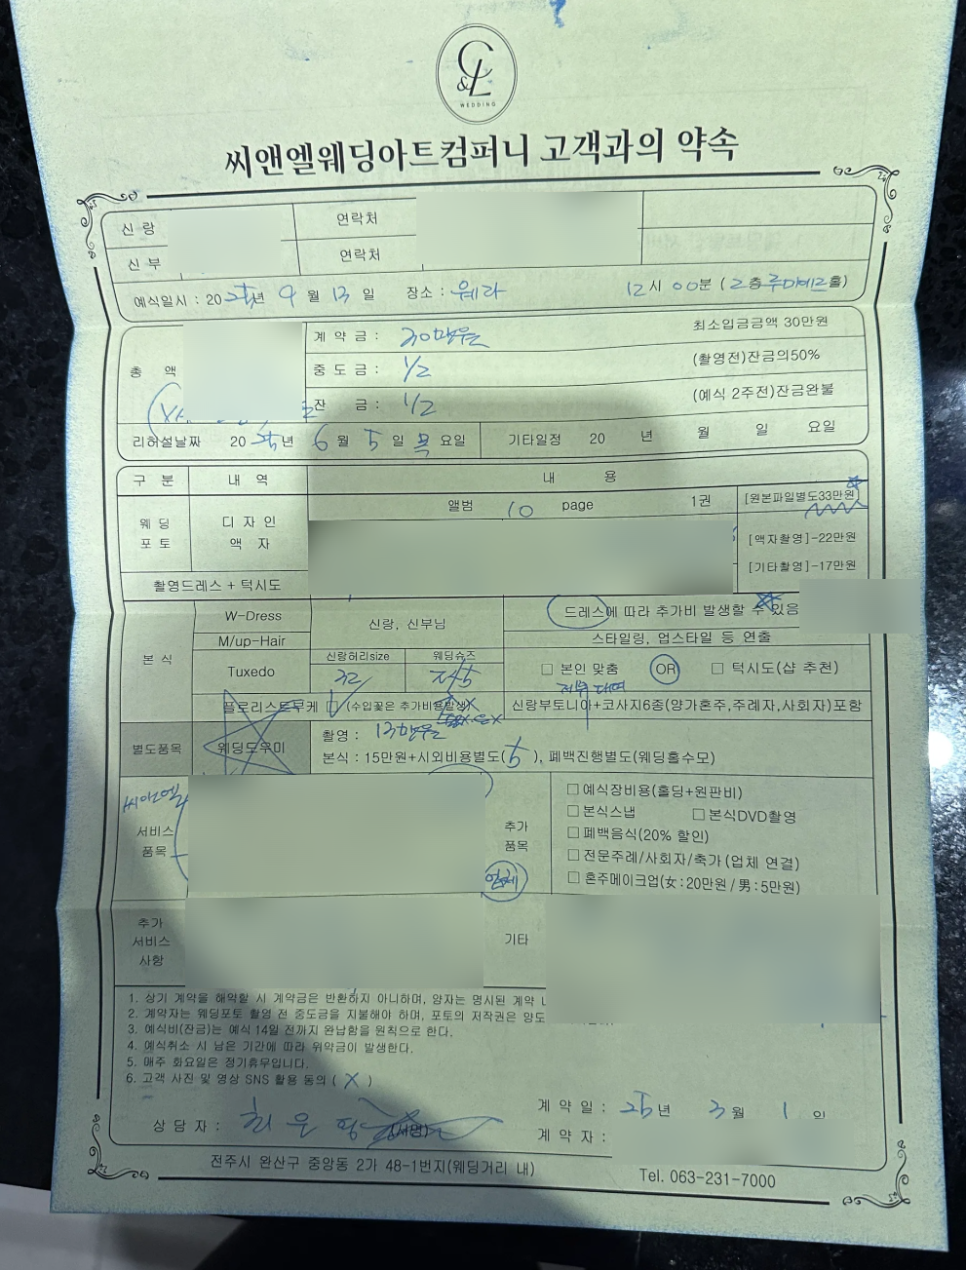 C&L
WEDDING
씨앤엘웨딩아트컴퍼니 고객과의 약속
신 랑 연락처
신 부 연락처
예식일시 : 2025년 9월 13일 장소 : 웨라 12시 00분 (2층 루미에르홀)
총 액
계 약 금 : 30만원 최소입금금액 30만원
중 도 금 : 1/2 (촬영전)잔금의50%
잔 금 : 1/2 (예식 2주전)잔금완불
리허설날짜 2025년 6월 5일 목요일 기타일정 20 년 월 일 요일
구 분 내 역 내 용
웨딩 포토 디자인 액 자
앨범 10 page 1권 [원본파일별도33만원]
[액자촬영]-22만원
[기타촬영]-17만원
촬영드레스 + 턱시도
본 식
W-Dress 신랑, 신부님 드레스에 따라 추가비 발생할 수 있음
M/up-Hair 스타일링, 업스타일 등 연출
Tuxedo 신랑허리size 웨딩슈즈
32 □ 본인 맞춤 OR □ 턱시도(샵 추천)
플로리스트부케 □ (수입꽃은 추가비용발생) 신랑부토니아+코사지6종(양가혼주,주례자,사회자)포함
별도품목 웨딩도우미
촬영 : 13만원
본식 : 15만원+시외비용별도(5), 페백진행별도(웨딩홀수모)
씨앤엘
서비스 품목
추가 품목
업체
□ 예식장비용(홀딩+원판비)
□ 본식스냅 □ 본식DVD촬영
□ 폐백음식(20% 할인)
□ 전문주례/사회자/축가 (업체 연결)
□ 혼주메이크업(女:20만원 / 男:5만원)
추가 서비스 사항
기타
1. 상기 계약을 해약할 시 계약금은 반환하지 아니하며, 양자는 명시된 계약
2. 계약자는 웨딩포토 촬영 전 중도금을 지불해야 하며, 포토의 저작권은 양도
3. 예식비(잔금)는 예식 14일 전까지 완납함을 원칙으로 한다.
4. 예식취소 시 남은 기간에 따라 위약금이 발생한다.
5. 매주 화요일은 정기휴무입니다.
6. 고객 사진 및 영상 SNS 활용 동의 ( X )
계 약 일 : 25년 3월 1일
상 담 자 : 최은 (서명)
계 약 자 :
전주시 완산구 중앙동 2가 48-1번지(웨딩거리 내) Tel. 063-231-7000